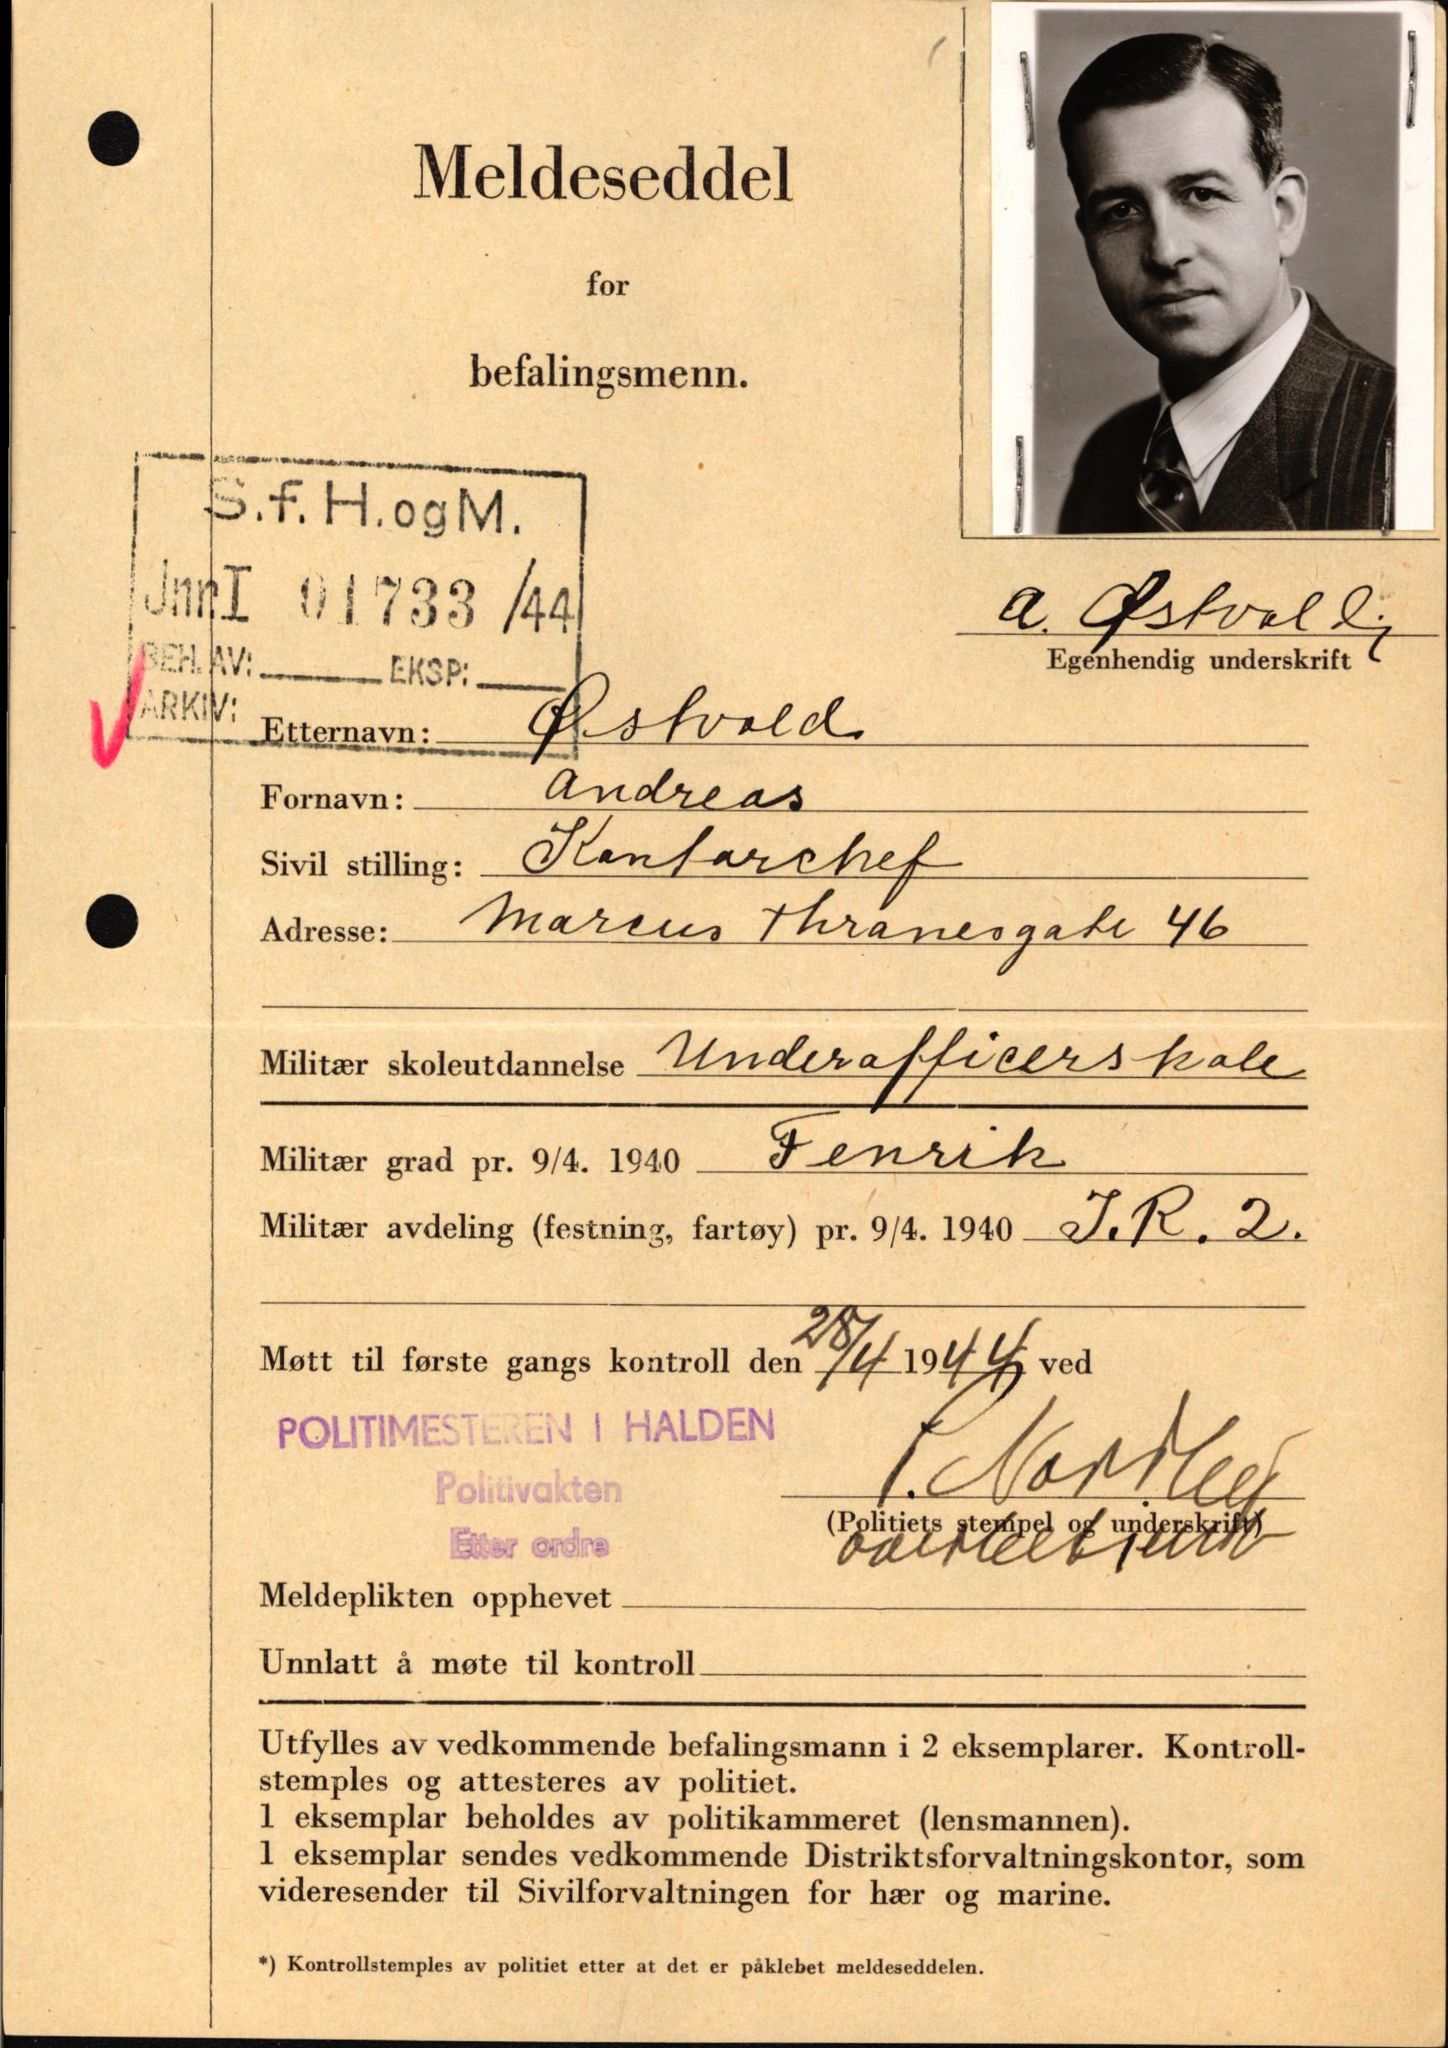 Meldeseddel
for
befalingsmenn.
S.f. H. og M.
Jnr I 01733 /44
BEH. AV: EKSP:
ARKIV:
A. Østvold
Egenhendig underskrift
Etternavn: Østvold
Fornavn: Andreas
Sivil stilling: Kontorchef
Adresse: Marcus Thranesgate 46
Militær skoleutdannelse Underofficerskole
Militær grad pr. 9/4. 1940 Fenrik
Militær avdeling (festning, fartøy) pr. 9/4. 1940 I.R. 2.
Møtt til første gangs kontroll den 28/4 1944 ved
POLITIMESTEREN I HALDEN
Politivakten
Etter ordre
(Politiets stempel og underskrift)
Meldeplikten opphevet
Unnlatt å møte til kontroll
Utfylles av vedkommende befalingsmann i 2 eksemplarer. Kontroll-
stemples og attesteres av politiet.
1 eksemplar beholdes av politikammeret (lensmannen).
1 eksemplar sendes vedkommende Distriktsforvaltningskontor, som
videresender til Sivilforvaltningen for hær og marine.
*) Kontrollstemples av politiet etter at det er påklebet meldeseddelen.